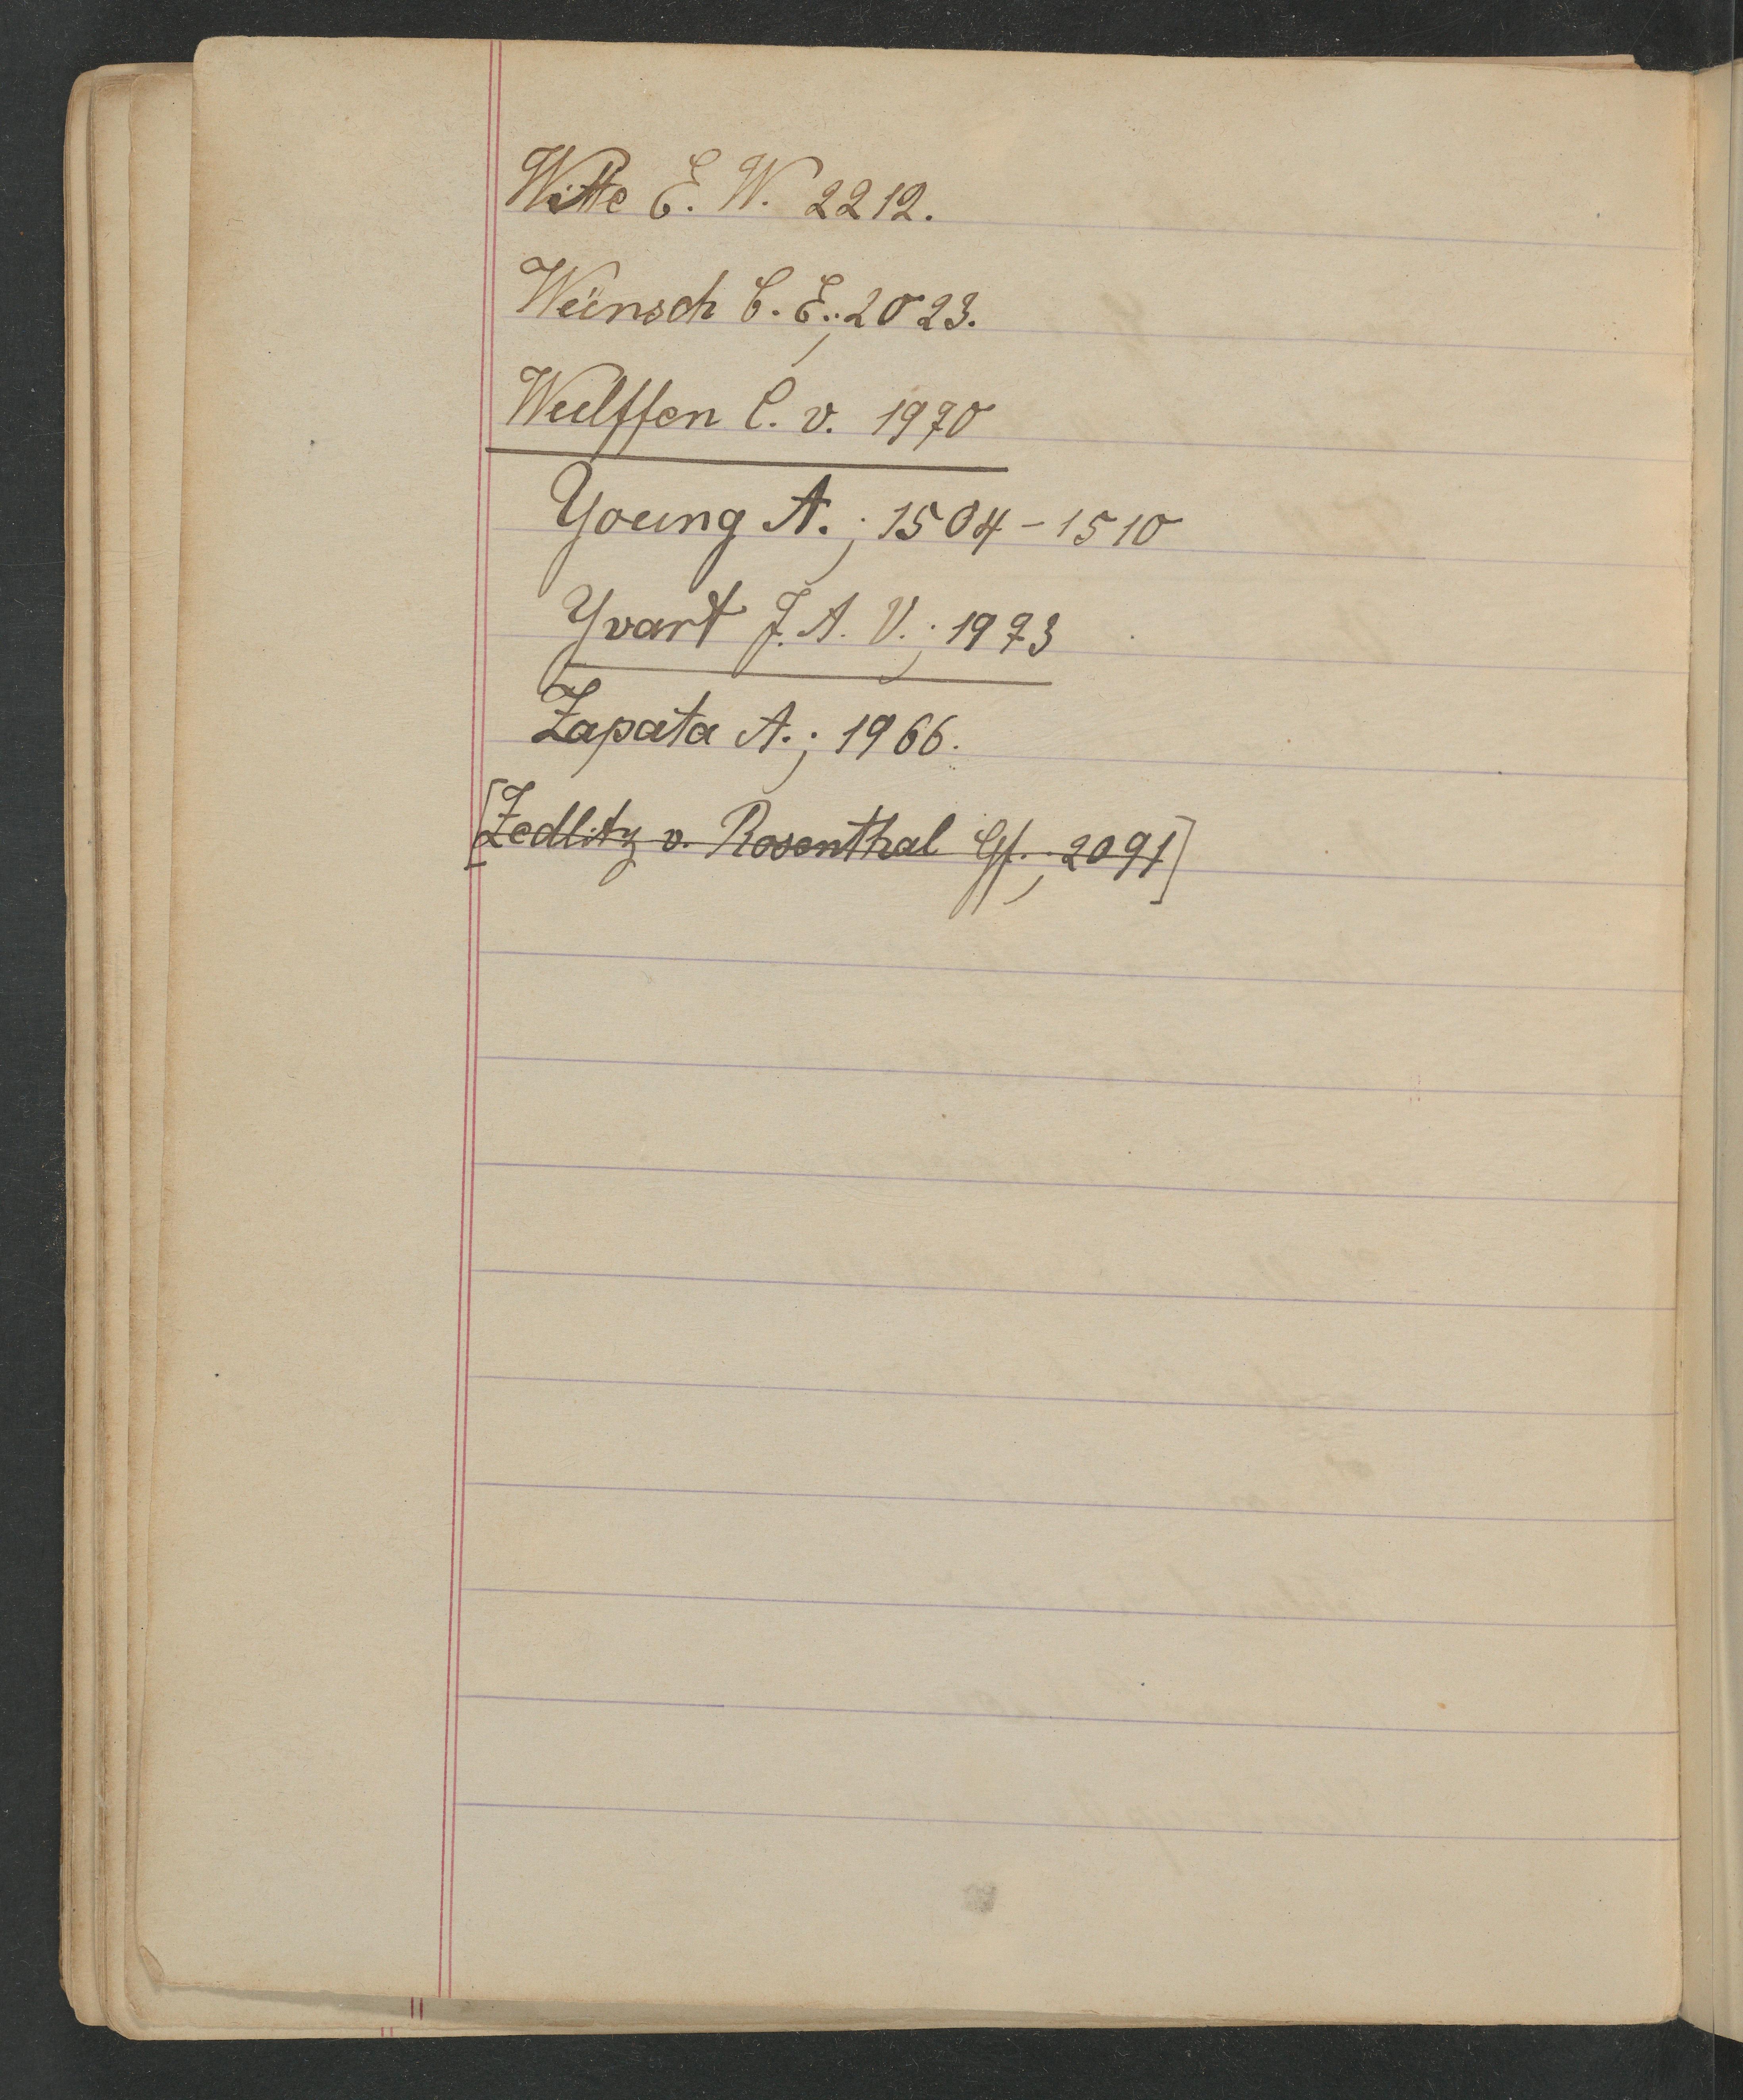 Witte E. W. 2212.
Wünsch C. E.; 2023.
Wulffen C. v. 1970
Young A.; 1504-1510
Yvart J. A. V.; 1973
Zapata A.; 1966.
[Zedlitz v. Rosenthal Gf.; 2091]